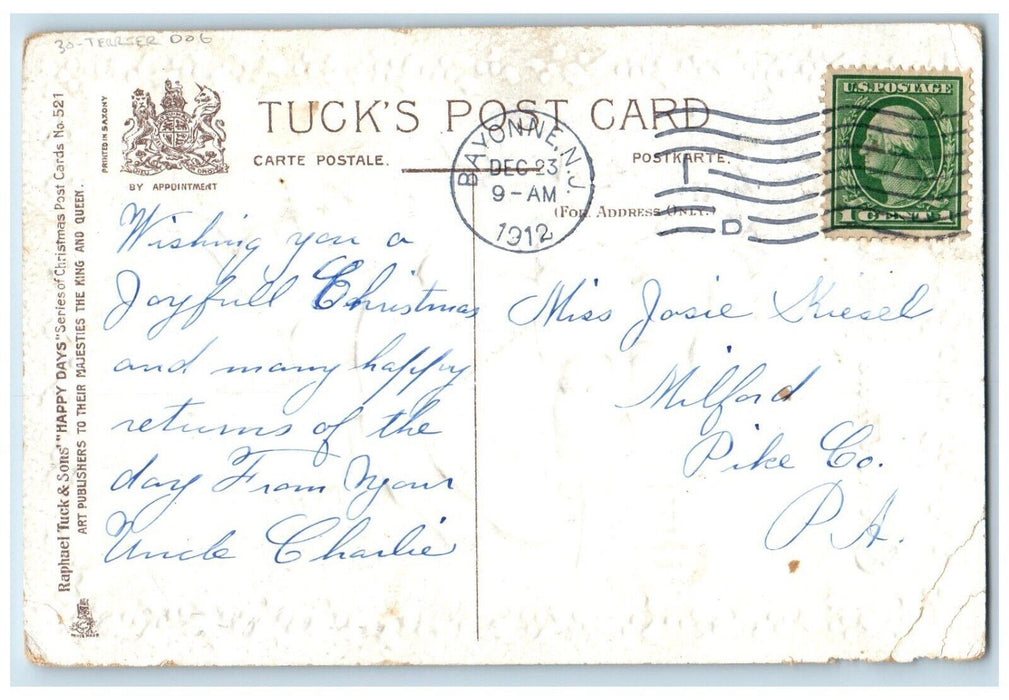 30-TERRIER DOG
Raphael Tuck & Sons' "HAPPY DAYS" Series of Christmas Post Cards No. 521
ART PUBLISHERS TO THEIR MAJESTIES THE KING AND QUEEN.
PRINTED IN SAXONY
BY APPOINTMENT
TUCK'S POST CARD
CARTE POSTALE.
POSTKARTE.
(FOR ADDRESS ONLY.)
BAYONNE, N.J.
DEC 23
9-AM
1912
D
U.S. POSTAGE
1 CENT 1
Wishing you a
Joyfull Christmas
and many happy
returns of the
day From Your
Uncle Charlie
Miss Josie Kiesel
Milford
Pike Co.
PA.